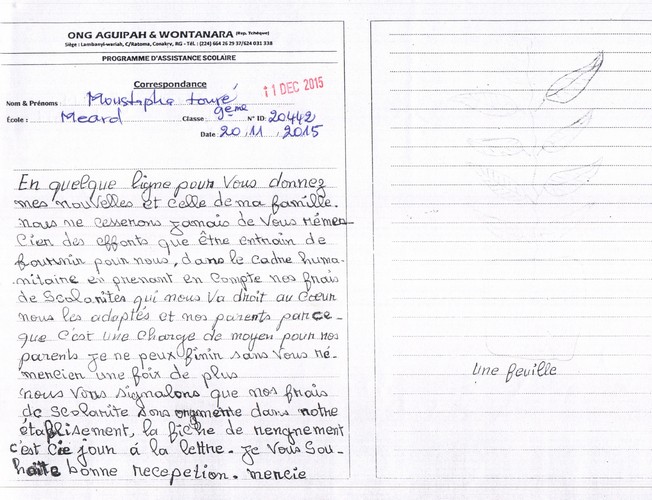 ONG AGUIPAH & WONTANARA (Rep. Tchèque)
Siège : Lambanyi-wariah, C/Ratoma, Conakry, RG - Tél. : (224) 664 26 29 37/624 031 338
PROGRAMME D'ASSISTANCE SCOLAIRE
Correspondance
11 DEC 2015
Nom & Prénoms : Moustapha touré
École : Meard Classe : 9ème N° ID: 20442
Date 20, 11, 2015
En quelque ligne pour vous donnez
mes nouvelles et celle de ma famille.
nous ne cesserons jamais de vous rémer
cier des efforts que être entrain de
fournir pour nous, dans le cadre huma-
nitaire en prenant en compte nos frais
de scolarites qui nous va droit au cœur
nous les adoptés et nos parents parce-
que c'est une charge de moyen pour nos
parents je ne peux finir sans vous ré-
mercier une foix de plus
nous vous signalons que nos frais
de scolarite sons ongmente dans notre
établisement, la fiche de rengnement
c'est cie jour à la lettre. je vous sou-
haite bonne recepetion. mercie
une feuille